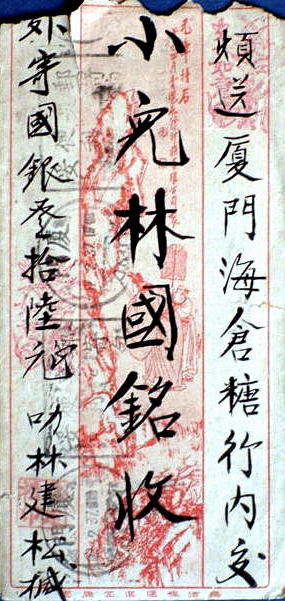 煩送廈門海倉糖行內交
小兒林國銘收
外寄國銀叁拾陸 叻林建松緘